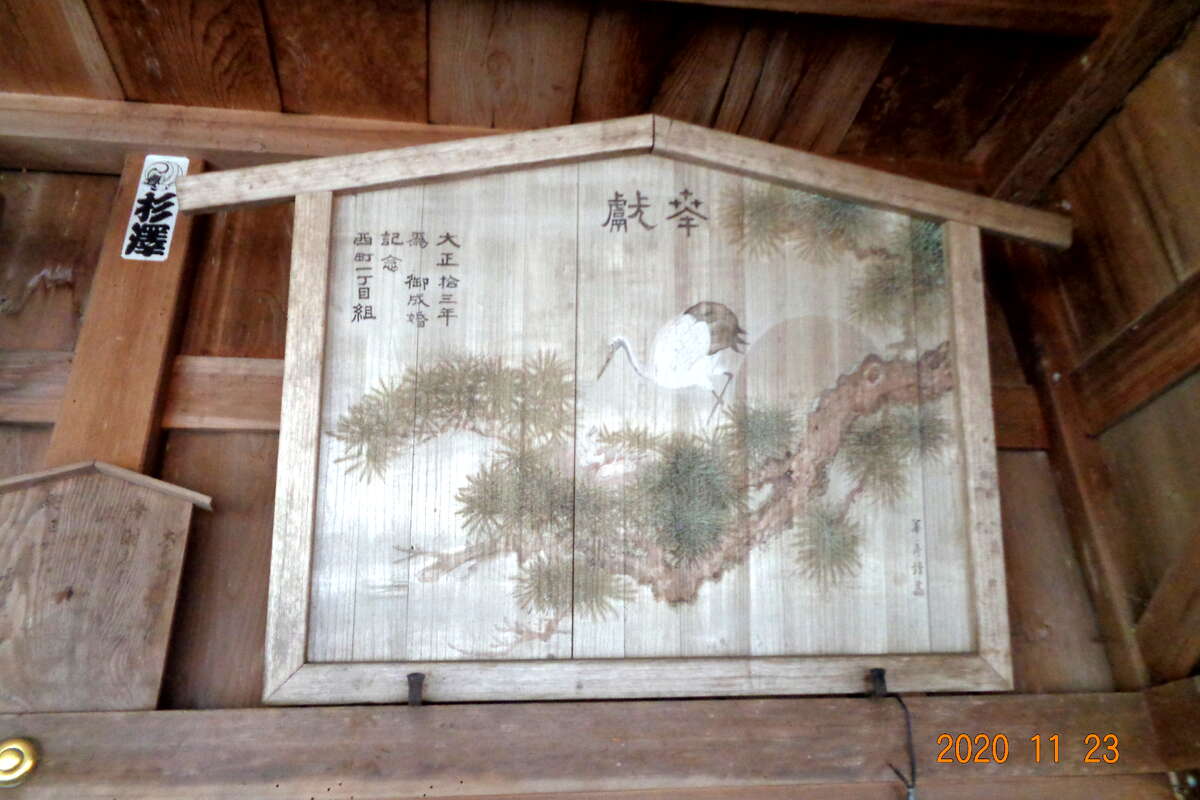 奉献
大正拾三年
為 御成婚
記念
西町一丁目組
杉澤
2020 11 23